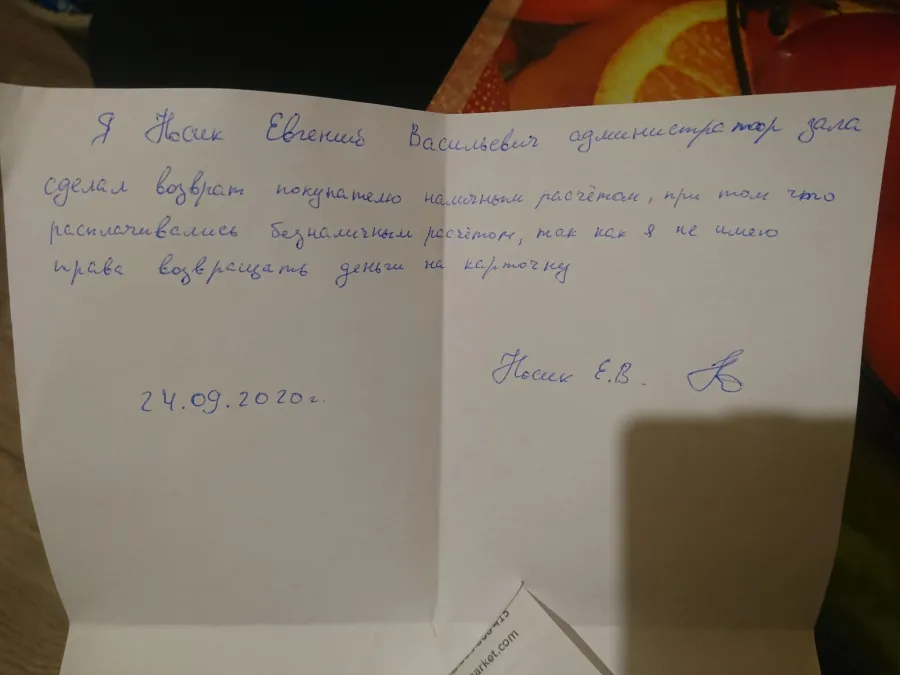 Я Носик Евгений Васильевич администратор зала
сделал возврат покупателю наличным расчётом, при том что
расплачивались безналичным расчётом, так как я не имею
права возвращать деньги на карточку
Носик Е.В.
24.09.2020г.
arket.com